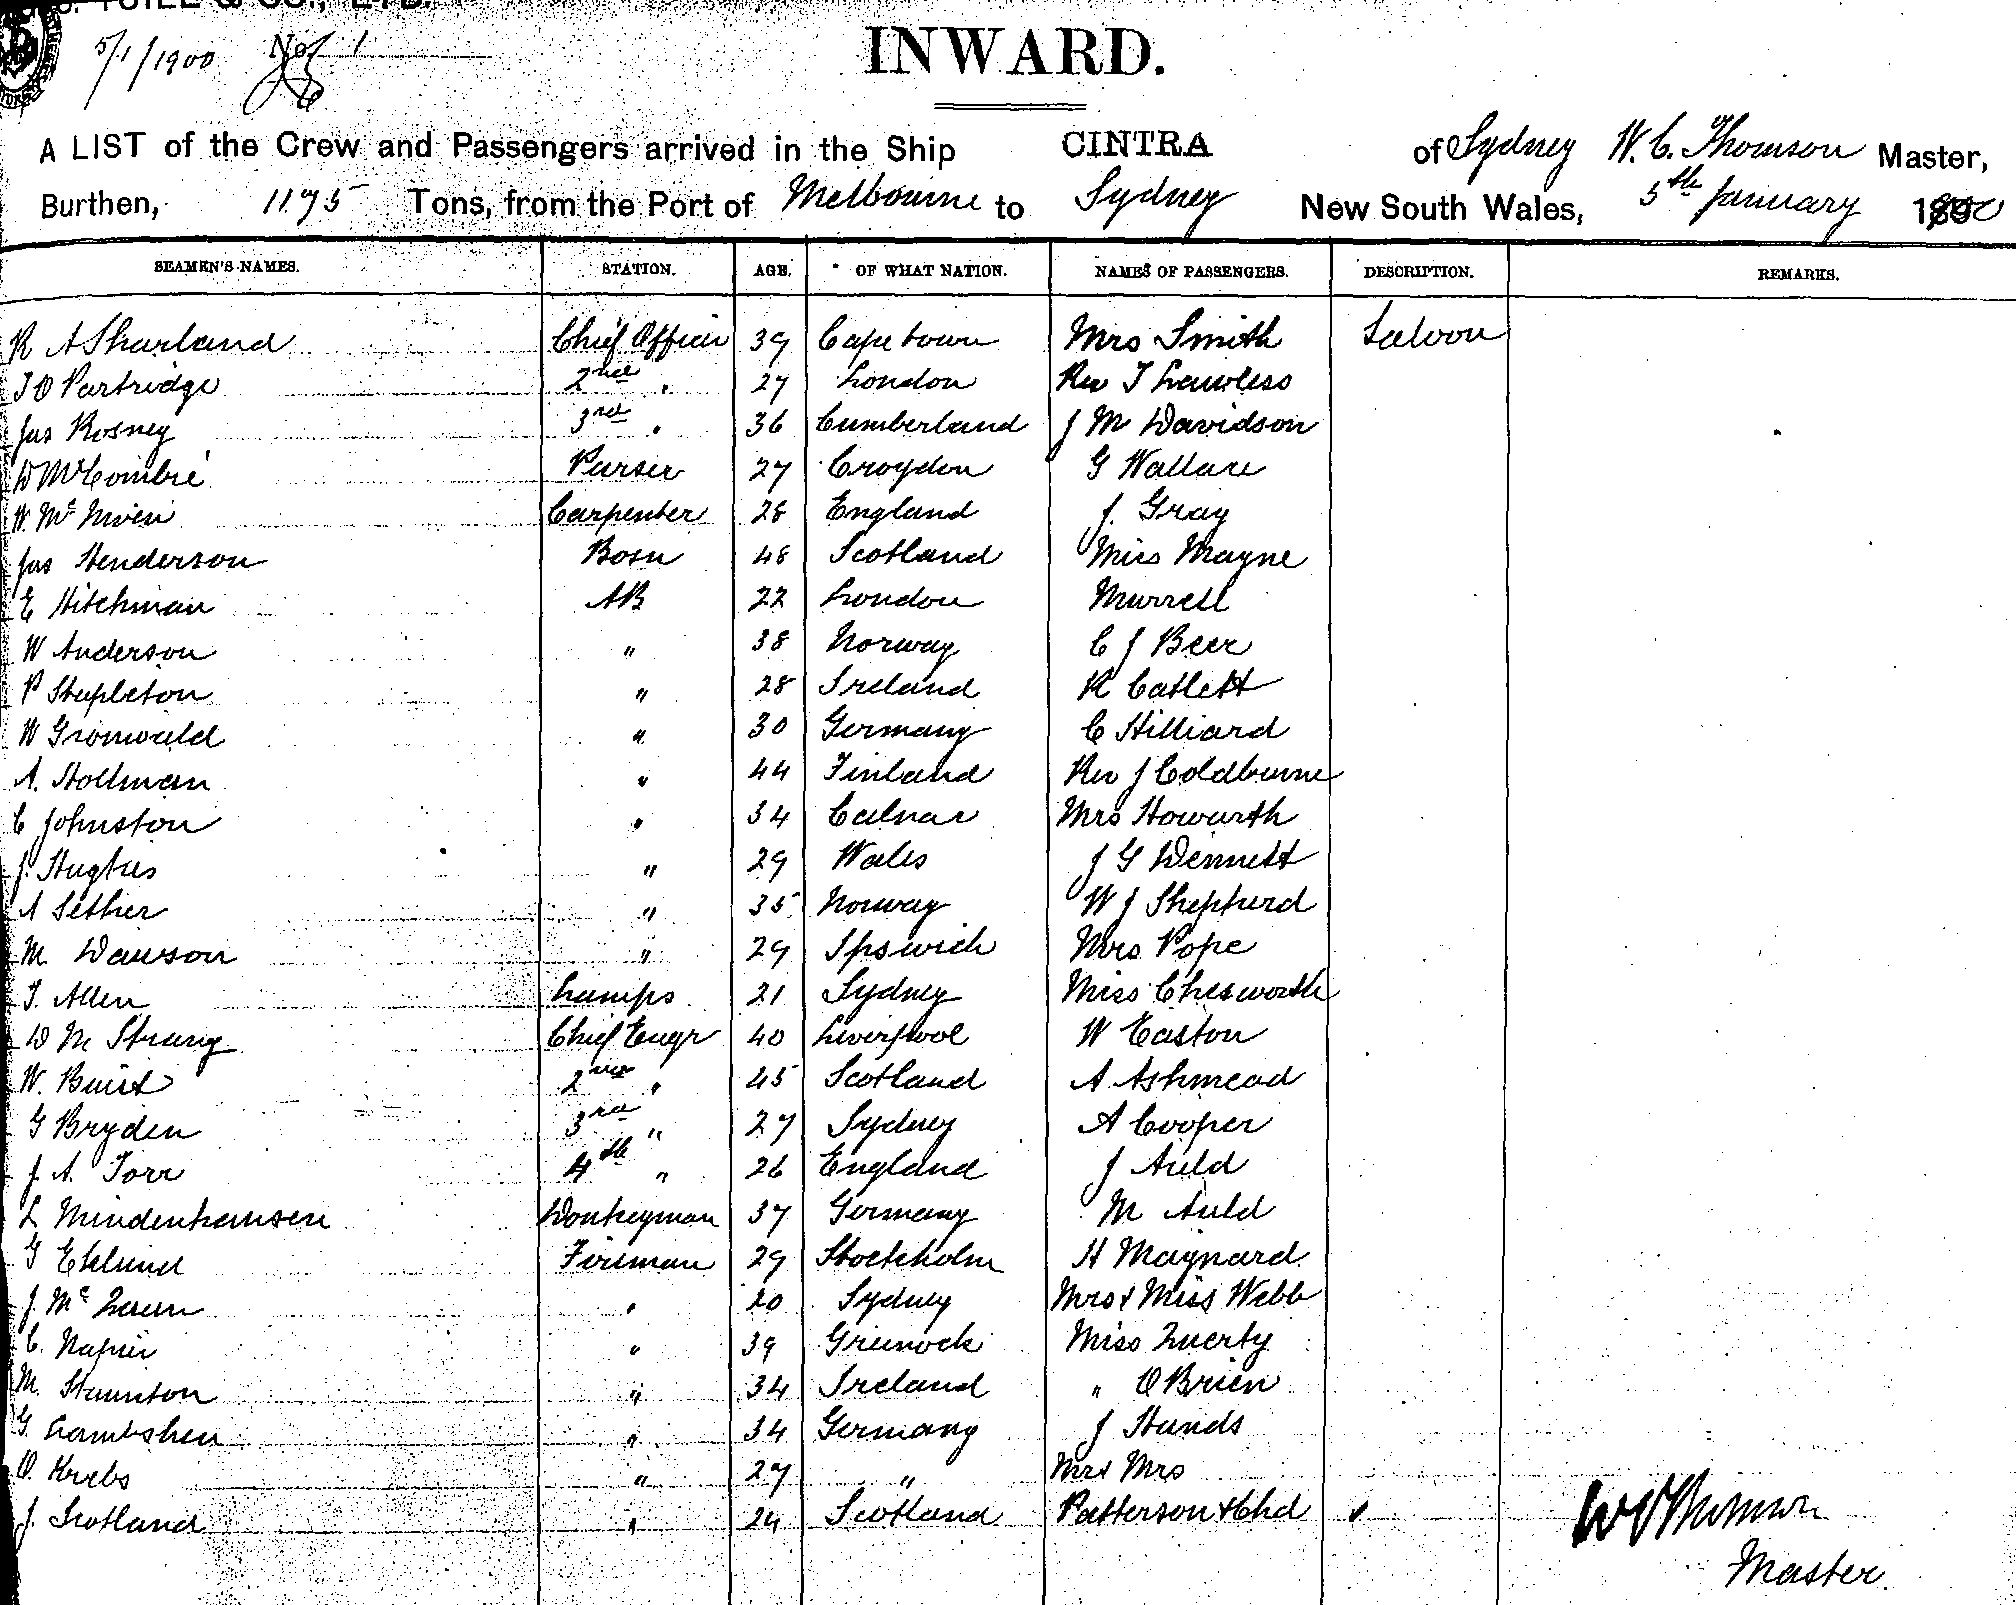 5/1/1900 No 1
INWARD.
A LIST of the Crew and Passengers arrived in the Ship CINTRA of Sydney W. C. Thomson Master,
Burthen, 1195 Tons, from the Port of Melbourne to Sydney New South Wales, 5th January 1900
SEAMEN'S NAMES. STATION. AGE. OF WHAT NATION. NAMES OF PASSENGERS. DESCRIPTION. REMARKS.
R A Sharland Chief Officer 39 Cape town Mrs Smith Saloon
J O Partridge 2nd " 27 London Rev T Lawless
Jas Rosney 3rd " 36 Cumberland J M Davidson
D McCombie Purser 27 Croydon G Wallace
W. Mc Niven Carpenter 28 England J. Gray
Jas Henderson Bosn 48 Scotland Miss Mayne
E Hitchman AB 22 London Murrell
W Anderson " 38 Norway C J Beer
P Stapleton " 28 Ireland R Catlett
W Gronwald " 30 Germany C Hilliard
A. Holtman " 44 Finland Rev J Coldburne
C Johnston " 34 Calmar Mrs Howarth
J. Hughes " 29 Wales J G Dennett
A Sether " 35 Norway W J Shepherd
M Dawson " 29 Ipswich Mrs Pope
T. Allen Lamps 21 Sydney Miss Chesworth
D M Strang Chief Engr 40 Liverpool W Easton
W. Buist 2nd " 45 Scotland A Ashmead
G Bryden 3rd " 27 Sydney A Cooper
J. A. Torr 4th " 26 England J Auld
L Mindenhausen Donkeyman 37 Germany M Auld
G Eklund Fireman 29 Stockholm H Maynard
J. Mc " 20 Sydney Mrs & Miss Webb
C. Napier " 39 Greenock Miss Querty
M. Staunton " 34 Ireland " O'Brien
G. Lambshen " 34 Germany J Hands
O. Krebs " 27 " Mr & Mrs
J. Scotland " 24 Scotland Patterson & Chd "
W C Thomson
Master